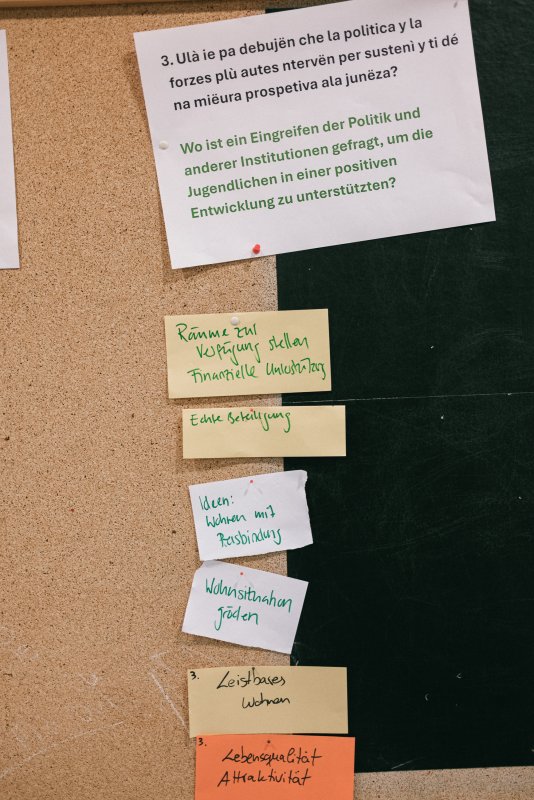 3. Ulà ie pa debujën che la politica y la
forzes plù autes ntervën per sustenì y ti dé
na miëura prospetiva ala junëza?
Wo ist ein Eingreifen der Politik und
anderer Institutionen gefragt, um die
Jugendlichen in einer positiven
Entwicklung zu unterstützten?
Räume zur
Verfügung stellen
Finanzielle Unterstützung
Echte Beteiligung
Ideen:
Wohnen mit
Preisbindung
Wohnsituation
gröden
3.
Leistbares
Wohnen
3.
Lebensqualität
Attraktivität